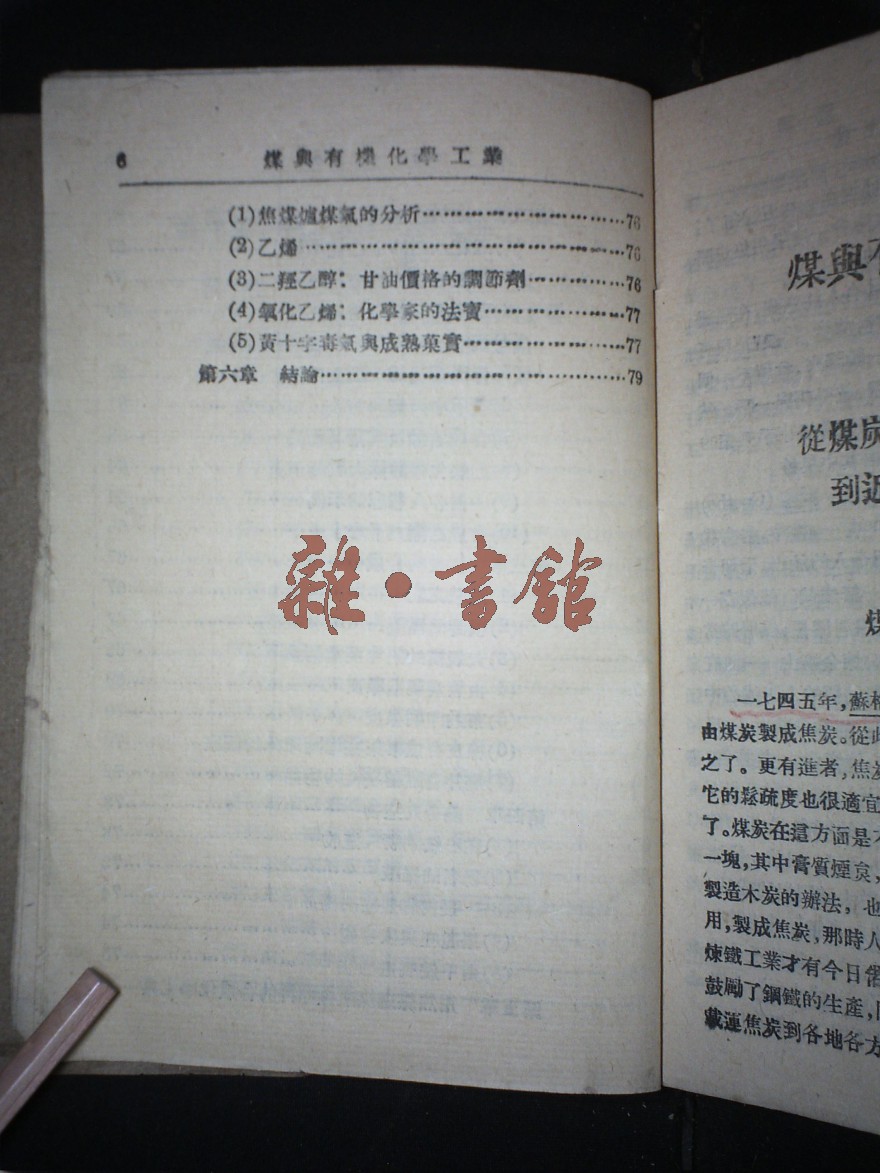 6
煤與有機化學工業
(1)焦煤爐煤氣的分析……………………………76
(2)乙烯……………………………………………76
(3)二羥乙醇：甘油價格的調節劑………………76
(4)氧化乙烯：化學家的法寶……………………77
(5)黃十字毒氣與成熟菓實………………………77
第六章 結論………………………………………79
雜·書館
煤與
從煤炭
到近
煤
一七四五年，蘇格
由煤炭製成焦炭。從此
之了。更有進者，焦炭
它的鬆疏度也很適宜
了。煤炭在這方面是不
一塊，其中膏質煙炱，
製造木炭的辦法，也
用，製成焦炭，那時人
煉鐵工業才有今日
鼓勵了鋼鐵的生產，
載運焦炭到各地各方